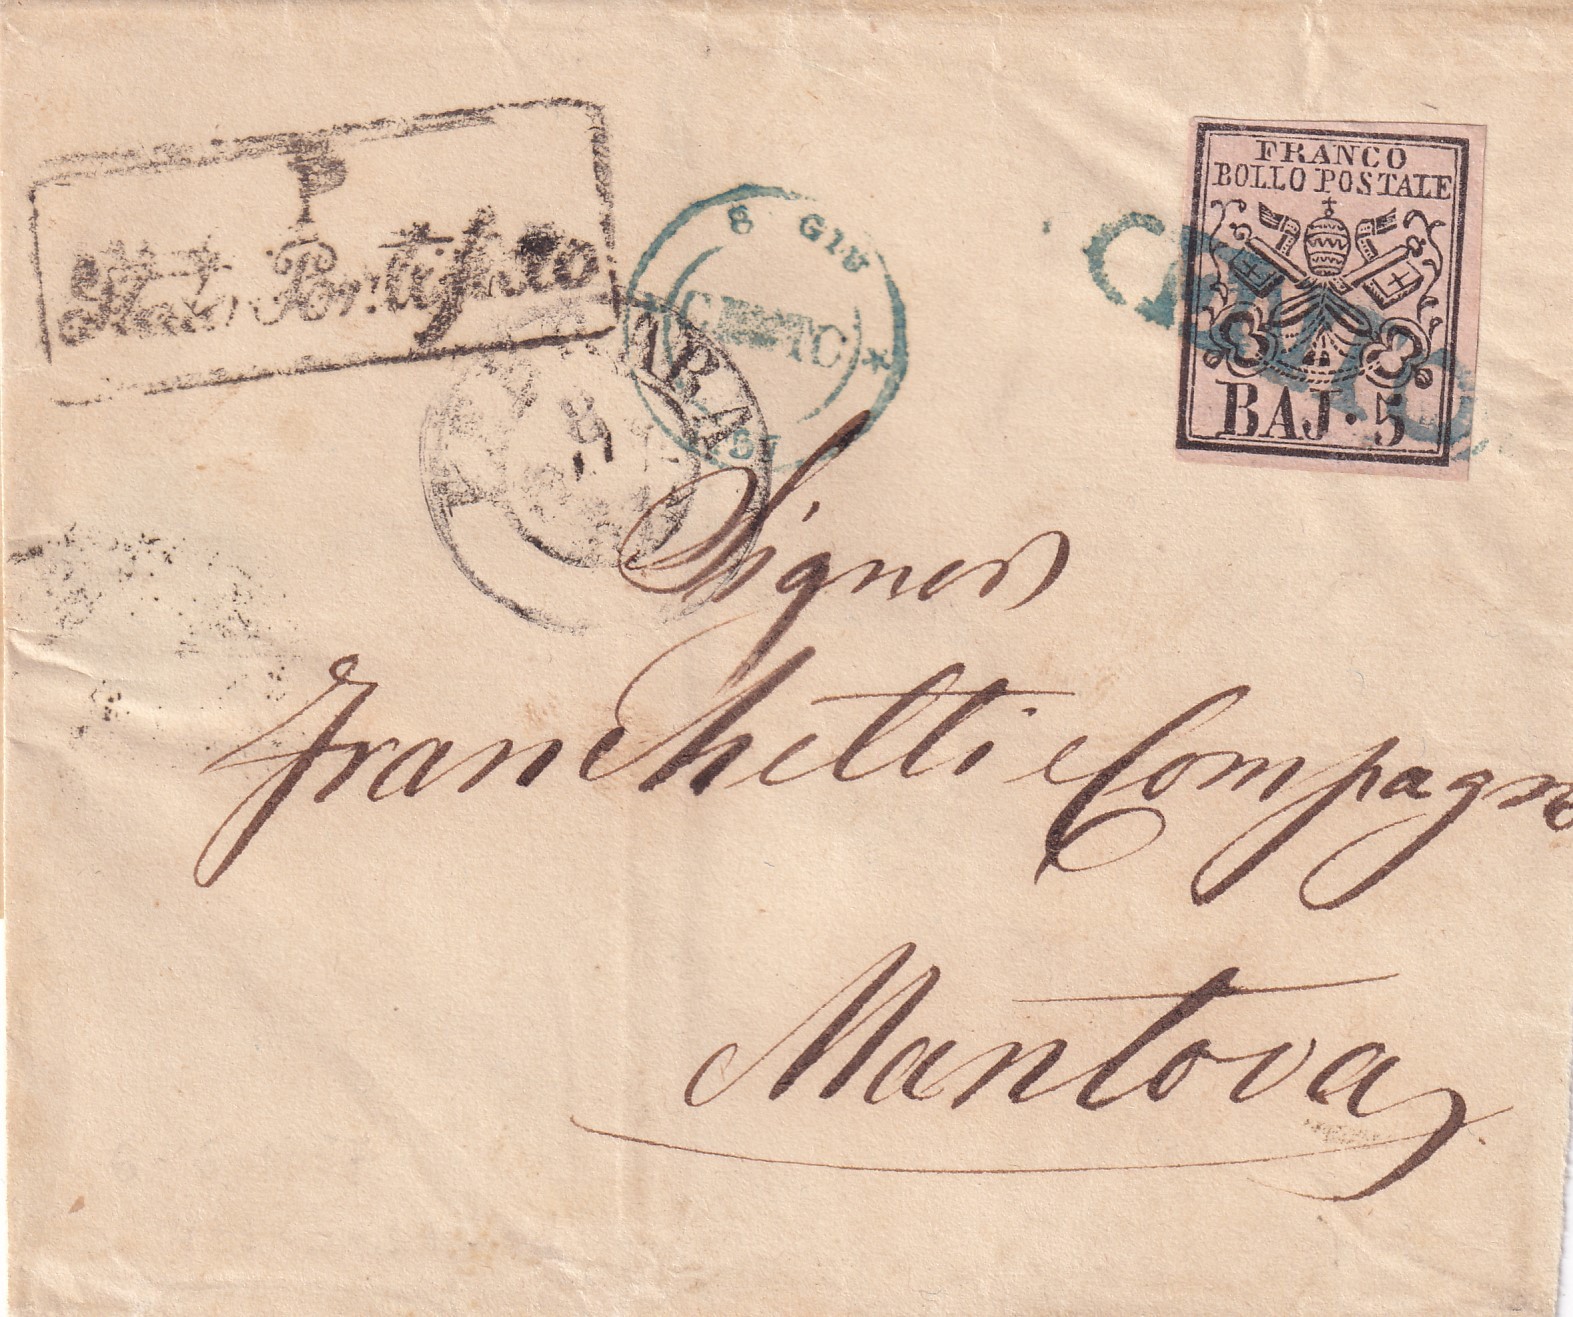 P
Stato Pontificio
8 GIU
CENTO
*
57
FERRARA
8
FRANCO
BOLLO POSTALE
BAJ. 5
CENTO
Signori
Franchetti e Compagn
Mantova